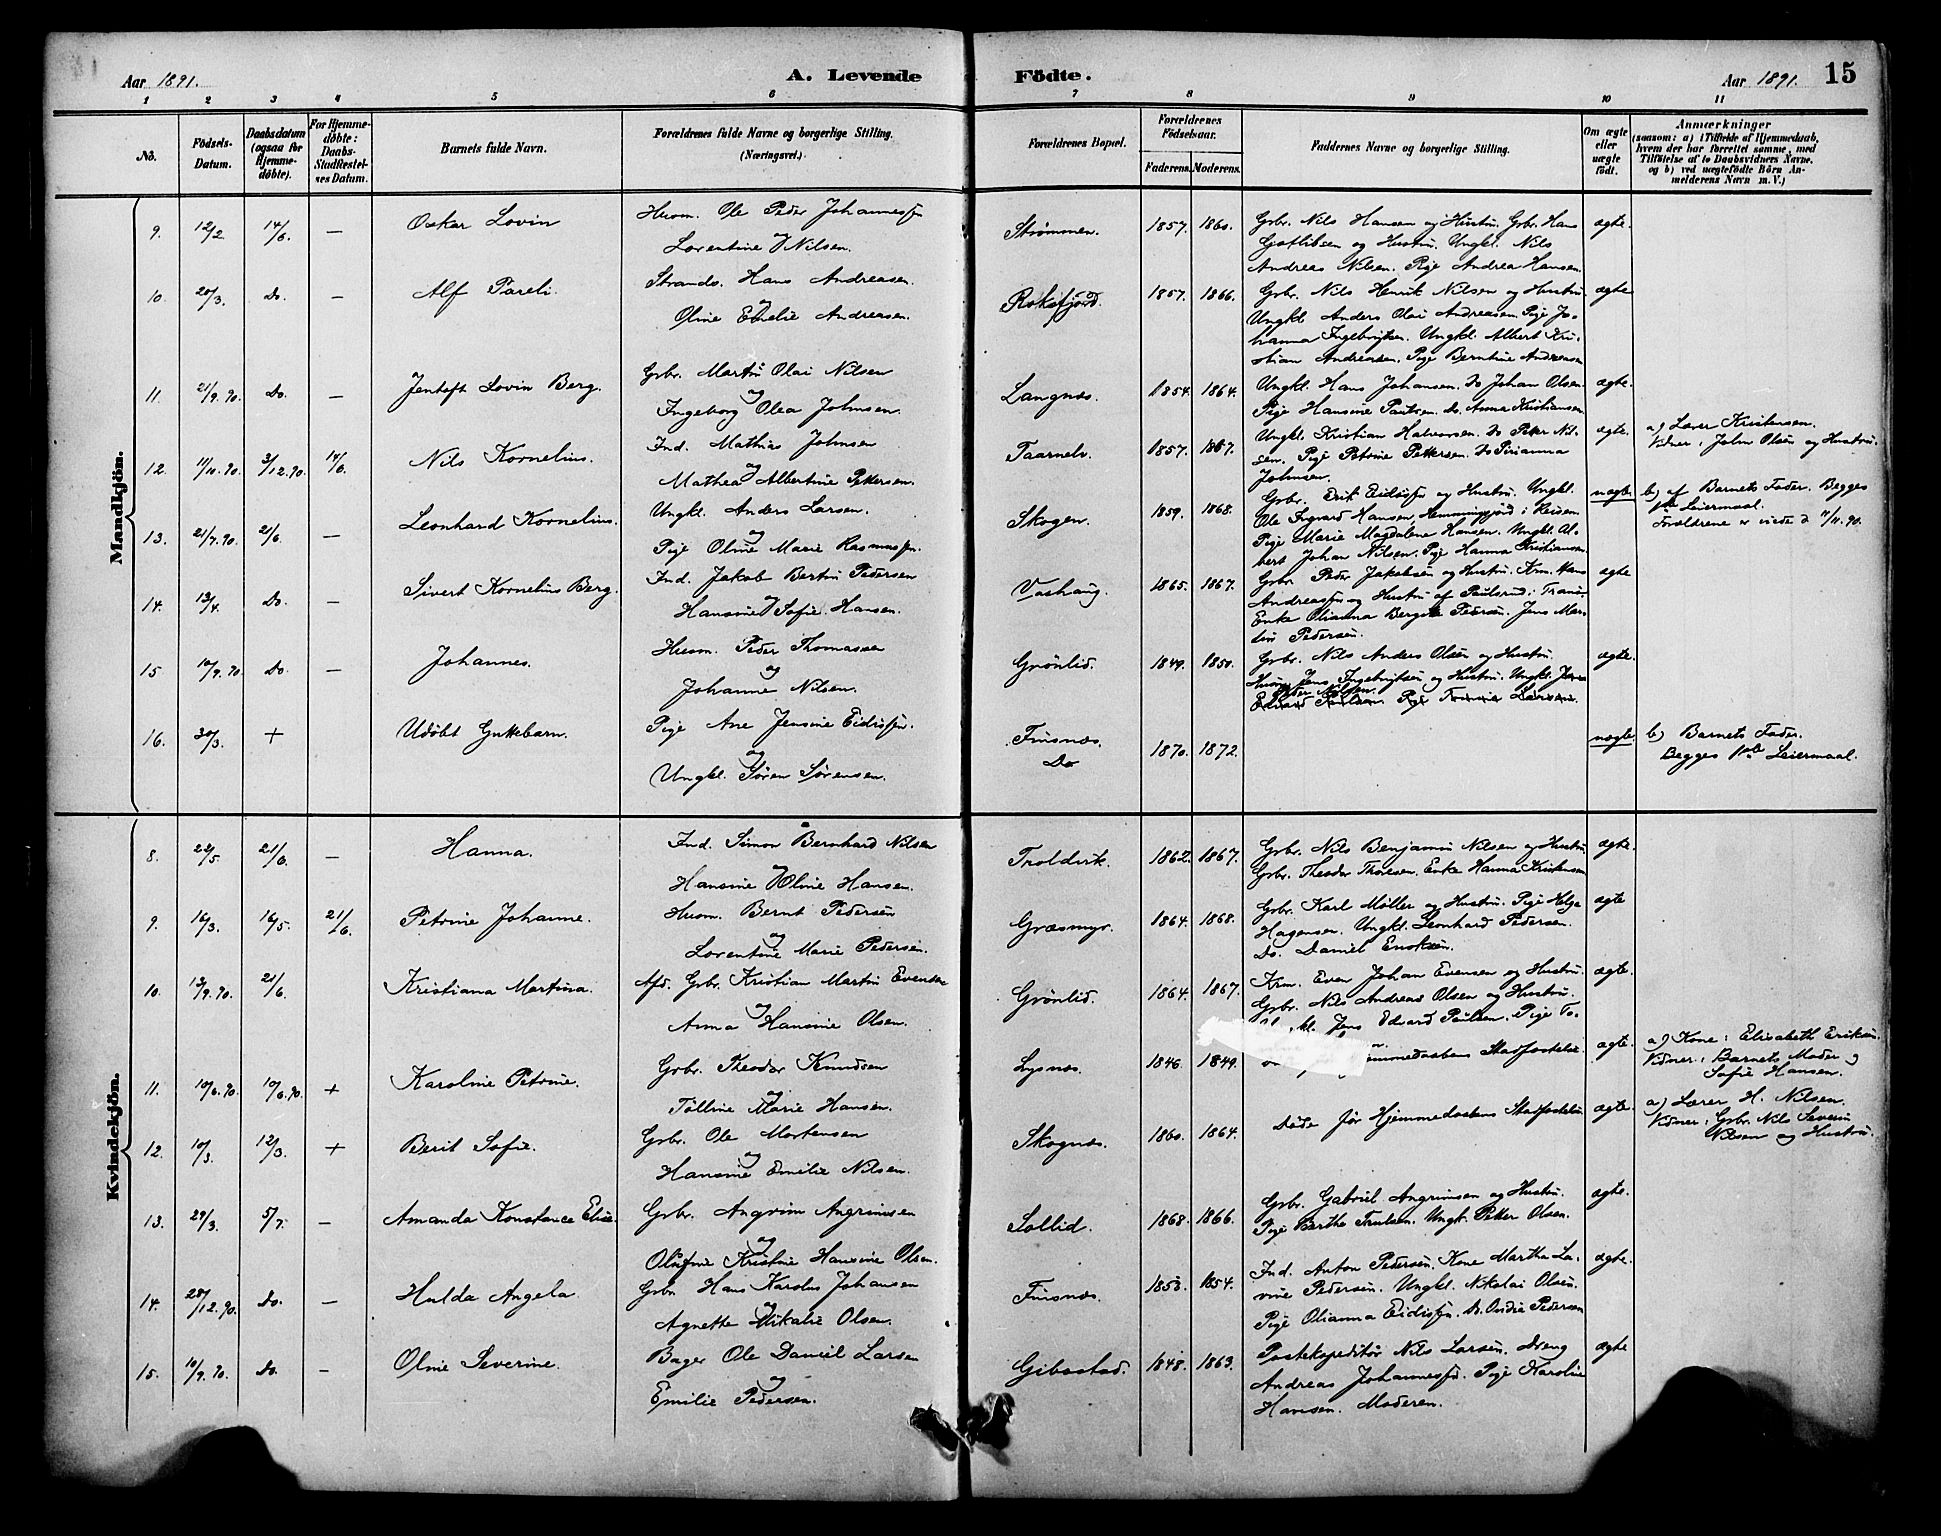 Aar 1891.
A. Levende
Födte.
Aar 1891.
15
1 2 3 4 5 6 7 8 9 10 11
No.
Födsels-Datum.
Daabsdatum (ogsaa for Hjemme-döbte).
For Hjemme-döbte: Daabs-Stadfæstel-ses Datum.
Barnets fulde Navn.
Forældrenes fulde Navne og borgerlige Stilling.
(Næringsvei.)
Forældrenes Bopæl.
Forældrenes Födselsaar.
Faderens. Moderens.
Faddernes Navne og borgerlige Stilling.
Om ægte eller uægte födt.
Anmærkninger
(saasom: a) i Tilfælde af Hjemmedaab,
hvem der har forrettet samme, med
Tilföielse af to Daabsvidners Navne.
og b) ved uægtefödte Börn An-
melderens Navn m. V.)
Mandkjön.
9. 12/2 14/6. — Oskar Lovin
Husm. Ole Peder Johannessen
og
Lorentine Nilsen.
Strømmen. 1857. 1860.
Gbr. Nils Hansen og Hustru. Gbr. Hans
Gotlibsen og Hustru. Ungkl. Nils
Andreas Nilsen. Pige Andrea Hansen.
ægte.
10. 20/3. Do. — Alf Pareli
Strands. Hans Andreasen
og
Oline Emelie Andreasen.
Roksfjord. 1857. 1866.
Gbr. Nils Henrik Nilsen og Hustru.
Ungkl. Anders Olai Andreasen. Pige Jo-
hanna Ingebrigtsen. Ungkl. Albert Kri-
stian Andreasen. Pige Berntine Andreasen
ægte
11. 21/9. 90. Do. — Jentoft Lovin Berg.
Gbr. Martin Olai Nilsen
og
Ingeborg Olea Johnsen.
Langnæs. 1854. 1864.
Ungkl. Hans Johansen. Do Johan Olsen.
Pige Hansine Paulsen. Do. Anna Kristiansen
ægte.
12. 11/10. 90. 3/12.90. 14/6. Nils Kornelius.
Ind. Mathias Johnsen
og
Mathea Albertine Pettersen.
Taarnelv. 1857. 1867.
Ungkl. Kristian Halvorsen. Do Peter Nil-
sen. Pige Petrine Pettersen. Do Pirianna
Johnsen.
ægte.
a) Lærer Kristensen.
Vidner: John Olsen og Hustru.
13. 21/7. 90. 21/6. — Leonhard Kornelius.
Ungkl. Anders Larsen.
og
Pige Oline Marie Rasmussen.
Skogen. 1859. 1868.
Gbr. Erik Eidissen og Hustru. Ungkl.
Ole Ingvard Hansen, Hemmingsjord i Reisen.
Pige Marie Magdalene Hansen. Ungkl. Al-
bert Johan Nilsen. Pige Hanna Kristiansen
uægte.
b) af Barnets Fader. Begges
1ste Leiermaal.
Forældrene er viede d. 11/11. 90.
14. 13/4. Do. — Sivert Kornelius Berg.
Ind. Jakob Bertin Pedersen
og
Hansine Sofie Hansen.
Vashaug. 1865. 1867.
Gbr. Peder Jakobsen og Hustru. Krm. Hans
Andreassen og Hustru af Paulsrud i Tranö.
Enke Olianna Bergitte Pedersen. Jens Mar-
tin Pedersen.
ægte
15 10/9. 90. Do. — Johannes.
Husm. Peder Thomassen
og
Johanne Nilsen.
Grönlid. 1849. 1850.
Gbr. Nils Anders Olsen og Hustru.
Husm. Jens Ingebrigtsen og Hustru. Ungkl. Jens
Peder Nilsen.
Edvard Paulsen. Pige Tomine Larsen.
ægte.
16. 30/3. + Udöbt Guttebarn.
Pige Ane Jensine Eidissen.
og
Ungkl. Sören Sörensen.
Finsnæs.
Do
1870. 1872.
uægte.
b) Barnets Fader.
Begges 1ste Leiermaal.
Kvindekjön.
8. 22/5. 21/6. — Hanna.
Ind. Simon Bernhard Nilsen
og
Hansine Oline Hansen.
Troldvik. 1862. 1867.
Gbr. Nils Benjamin Nilsen og Hustru.
Gbr. Theodor Thoresen. Enke Hanna Kristensen
ægte.
9. 16/3. 16/5. 21/6. Petrine Johanne.
Husm. Bernt Pedersen
og
Lorentine Marie Pedersen.
Græsmyr. 1864. 1868.
Gbr. Karl Möller og Hustru. Pige Helga
Hagensen. Ungkl. Leonhard Pedersen.
Do. Daniel Enoksen.
ægte
10. 13/9. 90. 21/6. Kristiana Martina.
Afd. Gbr. Kristian Martin Evensen
og
Anna Hansine Olsen.
Grönlid. 1864. 1867.
Krm. Even Johan Evensen og Hustru.
Gbr. Nils Andreas Olsen og Hustru.
Jens Edvard Paulsen. Pige To-
ægte.
11. 10/6. 90. 10/6. 90. + Karoline Petrine.
Gbr. Theodor Knudsen
og
Tölline Marie Hansen.
Lysnæs. 1846. 1849.
Hjemmedaabens Stadfæstelse
ægte.
a) Kone: Elisabeth Eriksen.
Vidner: Barnets Moder og
Sofie Hansen.
12. 10/3. 12/3. + Berit Sofie.
Gbr. Ole Mortensen
og
Hansine Emilie Nilsen.
Skognæs. 1860. 1864.
Döde för Hjemmedaabens Stadfæstelse
ægte.
a) Lærer H. Nilsen.
Vidner: Gbr. Nils Severin
Nilsen og Hustru.
13. 29/3. 5/7. — Amanda Konstance Elise.
Gbr. Angrim Angrimsen
og
Olufine Kristine Hansine Olsen.
Sollid. 1868. 1866.
Gbr. Gabriel Angrimsen og Hustru.
Pige Berthe Trulsen. Ungk. Petter Olsen.
ægte.
14. 28/12. 90. Do. — Hulda Angela.
Gbr. Hans Karolus Johansen
og
Agnette Mikalie Olsen.
Finsnæs. 1853. 1854.
Ind. Anton Pedersen. Kone Martha La-
vine Pedersen. Ungkl. Nikolai Olsen.
Pige Olianna Eidissen. Do. Ondia Pedersen
ægte.
15. 10/9. 90. Do. — Oline Severine.
Bager Ole Daniel Larsen
og
Emilie Pedersen.
Gibostad. 1848. 1863.
Postekspeditör Nils Larsen. Dreng
Andreas Johannesen. Pige Karoline
Hansen. Moderen.
ægte